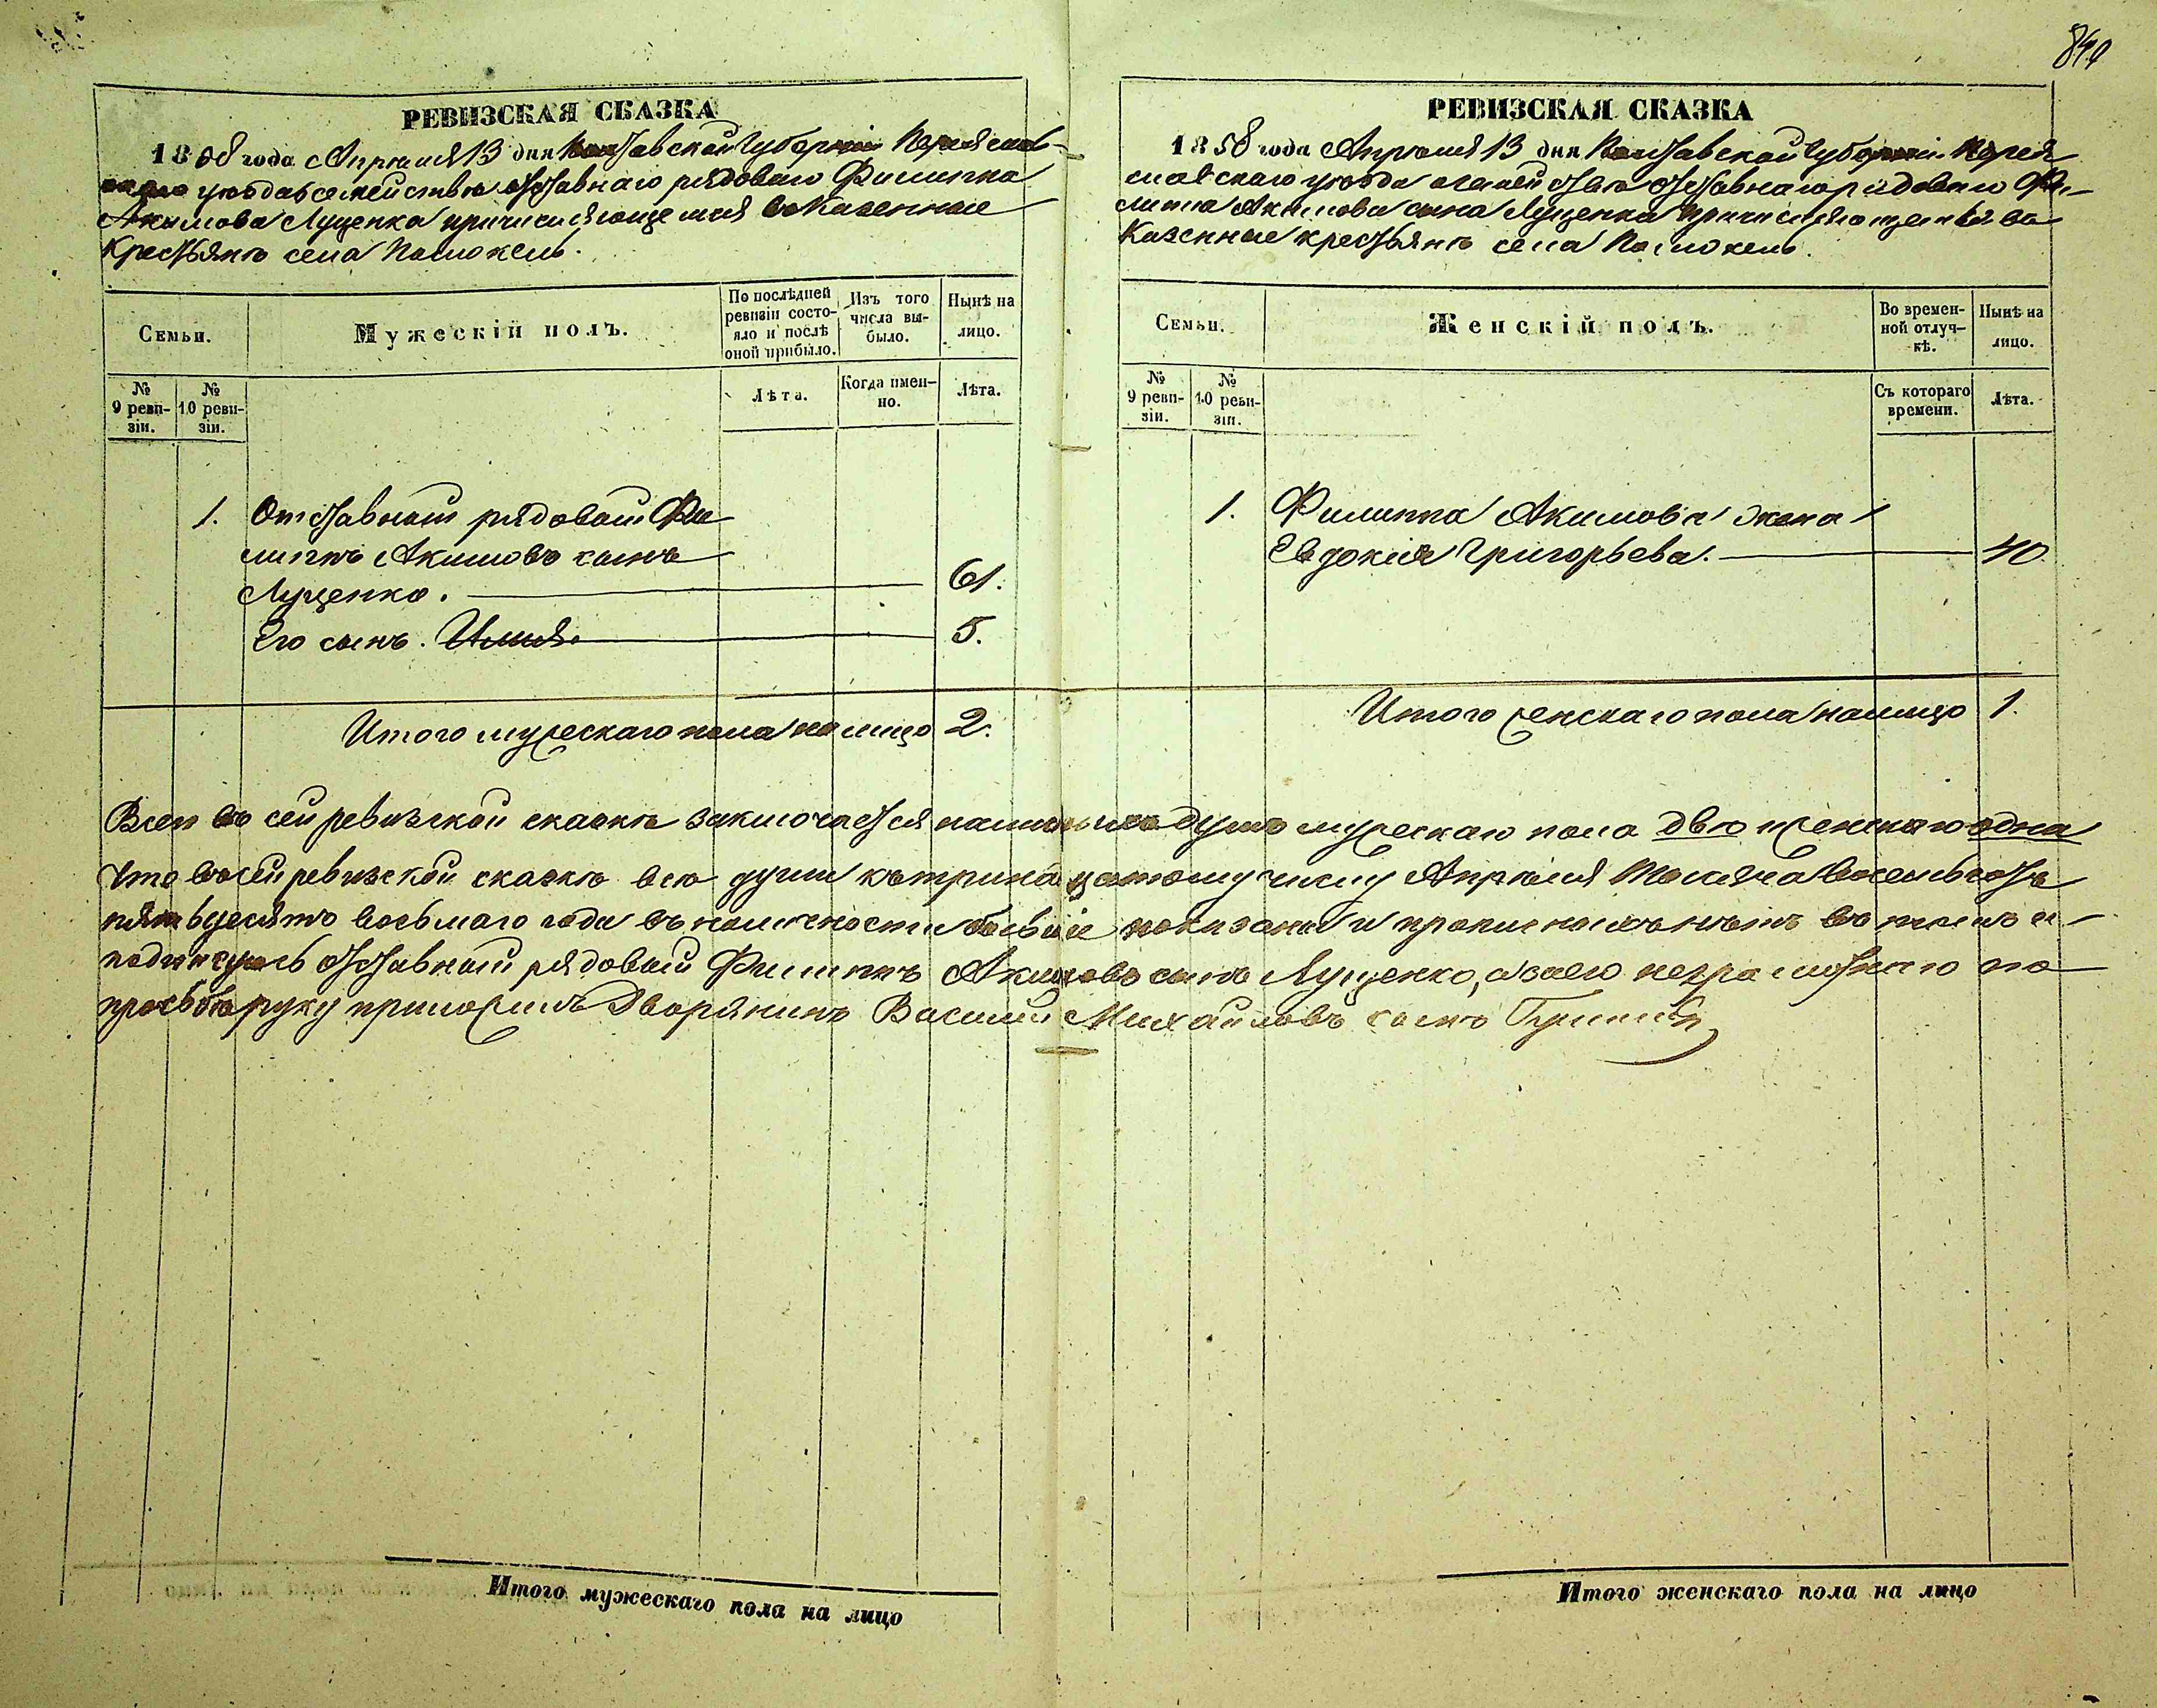 844
РЕВИЗСКАЯ СКАЗКА
1858 года Апрѣля 13 дня Полтавской Губерніи Переяслав-
скаго уѣзда о семействѣ отставнаго рядоваго Филиппа
Акимова Луценка причисляющемся въ Казенные
Крестьянъ села Помоклъ.
Семьи.
Мужескій полъ.
По послѣдней ревизіи состо-
яло и послѣ
оной прибыло.
Изъ того
числа вы-
было.
Нынѣ на
лицо.
№
9 реви-
зіи.
№
10 реви-
зіи.
Лѣта.
Когда имен-
но.
Лѣта.
1. Отставный рядовый Фи
липпъ Акимовъ сынъ
Луценко. 61.
Его сынъ. Илья. 5.
Итого мужескаго пола на лицо 2.
РЕВИЗСКАЯ СКАЗКА
1858 года Апрѣля 13 дня Полтавской Губерніи Перея
славскаго уѣзда о семействѣ отставнаго рядоваго Фи-
липпа Акимова сына Луценка причисляющемся въ
Казенные крестьянъ села Помоклъ.
Семьи.
Женскій полъ.
Во времен-
ной отлуч-
кѣ.
Нынѣ на
лицо.
№
9 реви-
зіи.
№
10 реви-
зіи.
Съ котораго
времени.
Лѣта.
1. Филиппа Акимова жена
Евдокія Григорьева. 40
Итого женскаго пола налицо 1.
Всего въ сей ревизской сказкѣ заключается наличныхъ душъ мужескаго пола двѣ женскаго одна
Что въ сей ревизской сказкѣ всѣ души къ тринадцатому числу Апрѣля Тысяча восемьсотъ
пятьдесятъ восьмаго года въ наличности бывшіе показаны и прописныхъ нѣтъ въ томъ и
подписуюсь отставный рядовый Филиппъ Акимовъ сынъ Луценко, а за его неграмотного по
просьбѣ руку приложилъ Дворянинъ Василій Михайловъ сынъ
Итого мужескаго пола на лицо
Итого женскаго пола на лицо